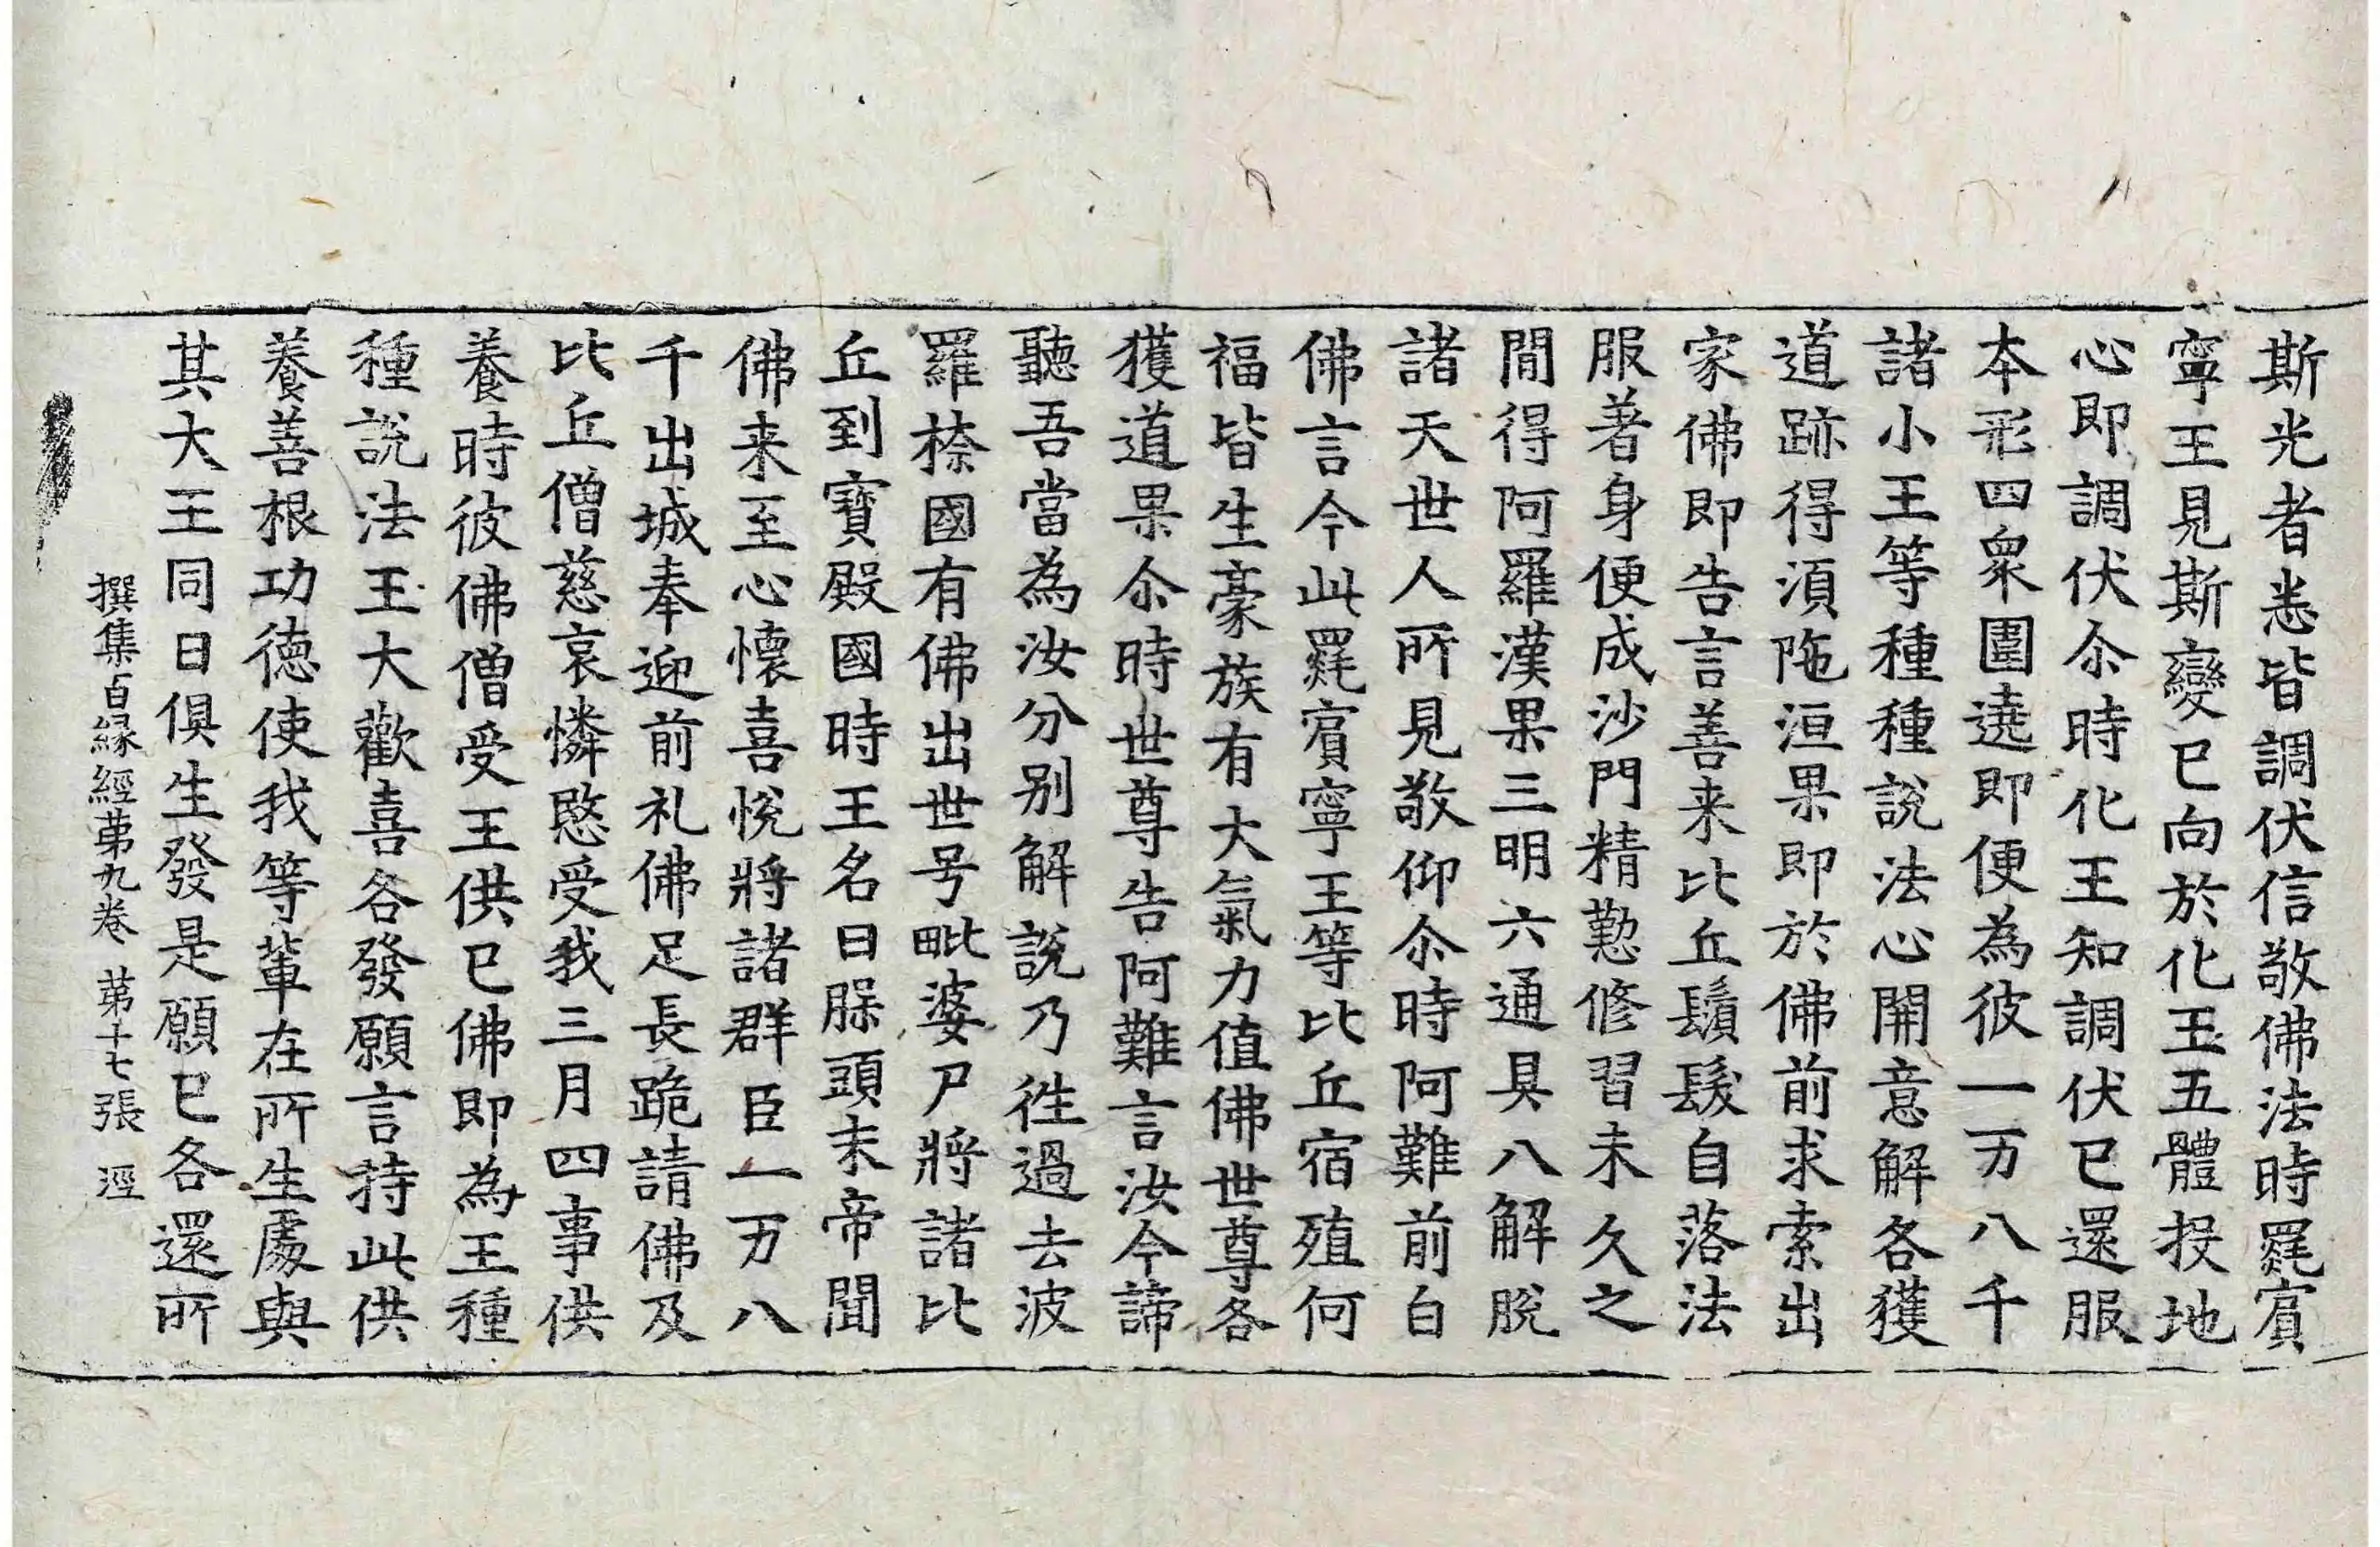 斯光者悉皆調伏信敬佛法時罽賓
寧王見斯變已向於化王五體投地
心即調伏尒時化王知調伏已還服
本形四衆圍遶即便為彼一万八千
諸小王等種種說法心開意解各獲
道跡得湏陁洹果即於佛前求索出
家佛即告言善来比丘鬚髮自落法
服著身便成沙門精懃修習未久之
閒得阿羅漢果三明六通具八解脫
諸天世人所見敬仰尒時阿難前白
佛言今此罽賓寧王等比丘宿殖何
福皆生豪族有大氣力值佛世尊各
獲道果尒時世尊告阿難言汝今諦
聽吾當為汝分别解說乃徃過去波
羅㮈國有佛出世号毗婆尸將諸比
丘到寶殿國時王名曰槃頭末帝聞
佛来至心懷喜悅將諸群臣一万八
千出城奉迎前礼佛足長跪請佛及
比丘僧慈哀憐愍受我三月四事供
養時彼佛僧受王供已佛即為王種
種說法王大歡喜各發願言持此供
養善根功德使我等輩在所生處與
其大王同日俱生發是願已各還所
撰集百緣經苐九卷 苐十七張 逕